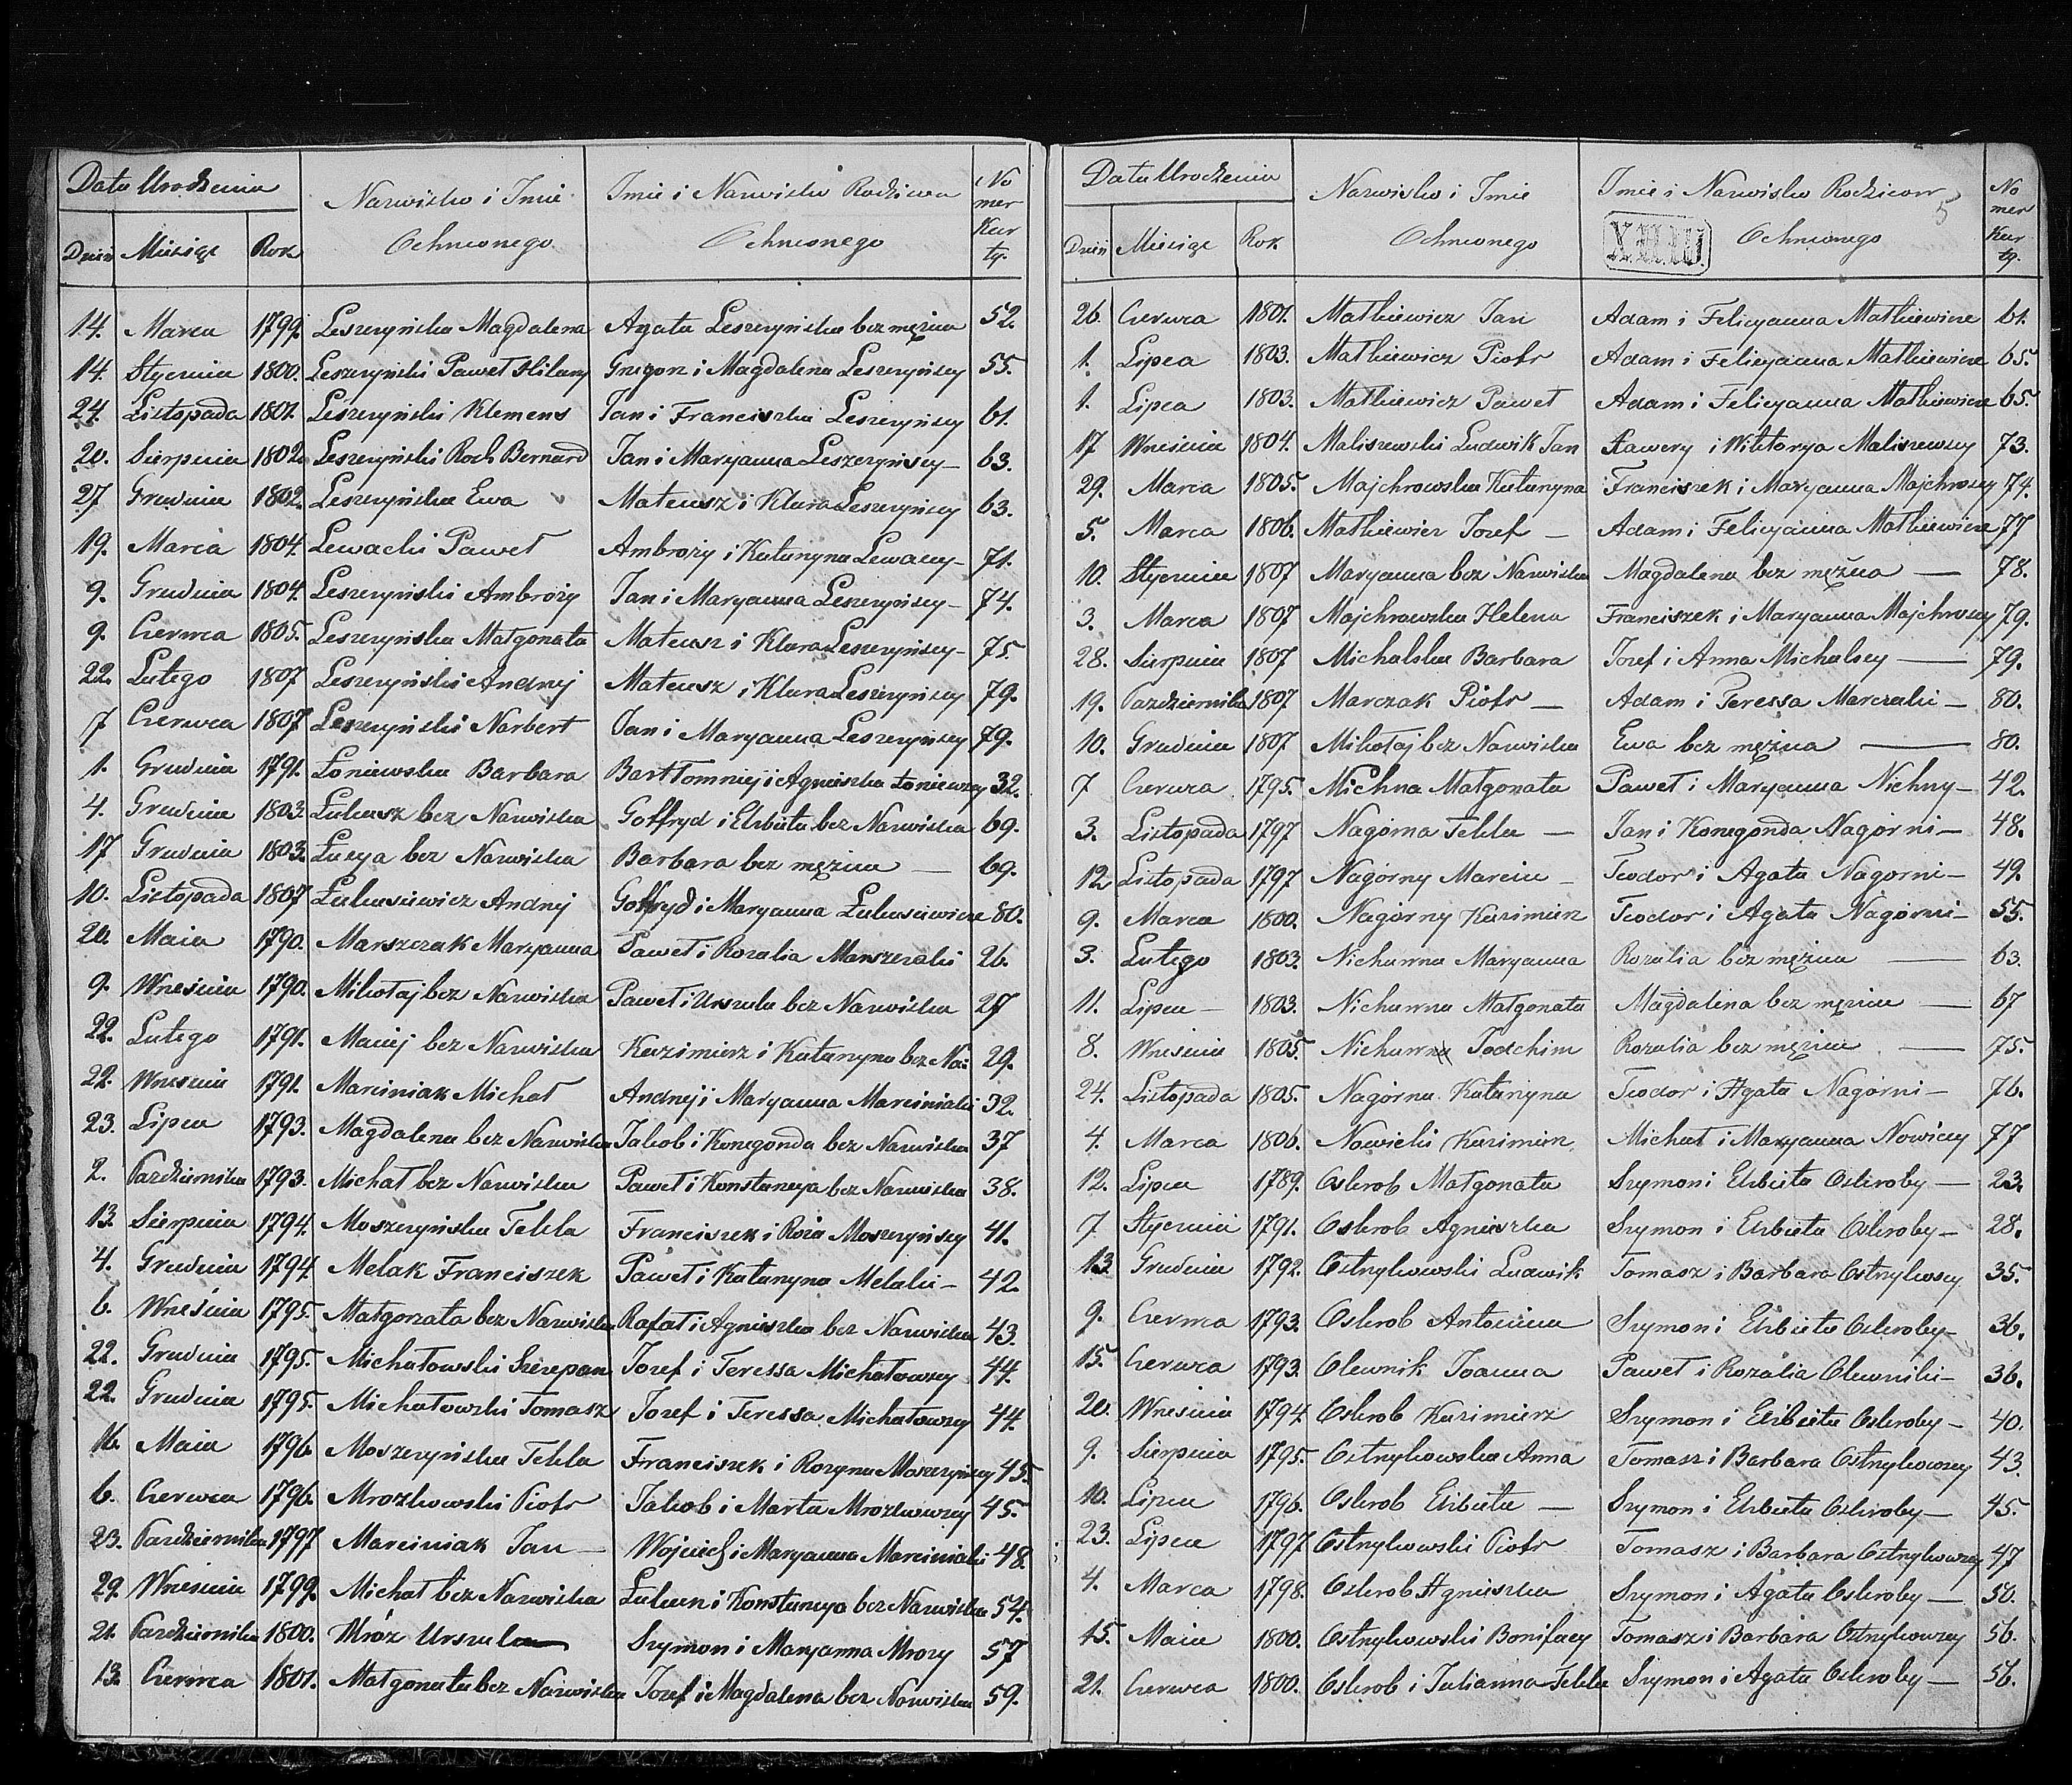 Data Urodzenia
Nazwisko i Imie Ochrzconego
Imie i Nazwisko Rodziców Ochrzconego
Nomer Karty.
Dzień Miesiąc Rok
14. Marca 1799. Leszczyńska Magdalena Agata Leszczyńska bez mężna 52.
14. Stycznia 1800. Leszczyński Paweł Hilary Grzegorz i Magdalena Leszczyńscy 55.
24. Listopada 1801. Leszczyński Klemens Jan i Franciszka Leszczyńscy 61.
20. Sierpnia 1802. Leszczyński Roch Bernard Jan i Maryanna Leszczyńscy — 63.
27 Grudnia 1802. Leszczyńska Ewa Mateusz i Klara Leszczyńscy 63.
19. Marca 1804. Lewacki Paweł Ambroży i Katarzyna Lewaccy — 71.
9. Grudnia 1804. Leszczyński Ambroży Jan i Maryanna Leszczyńscy — 74.
9. Czerwca 1805. Leszczyńska Małgorzata Mateusz i Klara Leszczyńscy — 75.
22. Lutego 1807 Leszczyński Andrzej Mateusz i Klara Leszczyńscy 79.
7 Czerwca 1807 Leszczyński Norbert Jan i Maryanna Leszczyńscy 79.
1. Grudnia 1791. Łoniewska Barbara Bartłomniej i Agnieszka Łoniewscy 32.
4. Grudnia 1803. Łukasz bez Nazwiska Goffryd i Elżbieta bez Nazwiska 69.
17 Grudnia 1803. Łucya bez Nazwiska Barbara bez mężna — 69.
10. Listopada 1807 Łukasiewicz Andrzej Goffryd i Maryanna Łukasiewicze 80.
20. Maia 1790. Marszczak Maryanna Paweł i Rozalia Marszczaki 26.
9. Września 1790. Mikołaj bez Nazwiska Paweł i Urszula bez Nazwiska 27
22. Lutego 1791. Maciej bez Nazwiska Kazimierz i Katarzyna bez Na: 29.
22. Wrześnią 1791. Marciniak Michał Andrzej i Maryanna Marciniaki 32.
23. Lipca 1793. Magdalena bez Nazwiska Jakob i Konegonda bez Nazwiska 37
2. Pazdziernika 1793. Michał bez Nazwiska Paweł i Konstancya bez Nazwiska 38.
13. Sierpnia 1794. Moszczyńska Tekla Franciszek i Roża Moszczyńscy 41.
4. Grudnia 1794 Melak Franciszek Paweł i Katarzyna Melaki — 42.
6. Wrześnią 1795. Małgorzata bez Nazwiska Rafał i Agnieszka bez Nazwiska 43.
22. Grudnia 1795. Michałowski Szczepan Jozef i Teressa Michałowscy 44.
22. Grudnia 1795. Michałowski Tomasz Jozef i Teressa Michałowscy 44.
16. Maia 1796. Moszczyńska Tekla Franciszek i Rozyna Moszczyńscy 45.
6. Czerwca 1796. Mrozkowski Piotr Jakob i Marta Mrozkowscy 45.
23. Pazdziernika 1797 Marciniak Jan — Wojciech i Maryanna Marciniaki 48.
29. Wrześnią 1799. Michał bez Nazwiska Łukasz i Konstancya bez Nazwiska 54.
21. Pazdziernika 1800. Mróz Urszula Szymon i Maryanna Mrozy 57
13. Czerwca 1801. Małgorzata bez Nazwiska Jozef i Magdalena bez Nazwiska 59.
Data Urodzenia
Nazwisko i Imie Ochrzconego
Imie i Nazwisko Rodziców Ochrzconego
5
Nomer Karty.
Dzień Miesiąc Rok
26. Czerwca 1801. Matkiewicz Jan Adam i Felicyanna Matkiewicze 61.
1. Lipca 1803. Matkiewicz Piotr Adam i Felicyanna Matkiewicze 65.
1. Lipca 1803. Matkiewicz Paweł Adam i Felicyanna Matkiewicze 65.
17 Wrześnią 1804. Maliszewski Ludwik Jan Xawery i Wiktorya Maliszewscy 73.
29. Marca 1805. Majchrowska Katarzyna Franciszek i Maryanna Majchrowscy 74.
5. Marca 1806. Matkiewicz Jozef — Adam i Felicyanna Matkiewicze 77
10. Stycznia 1807 Maryanna bez Nazwiska Magdalena bez mężna — 78.
3. Marca 1807 Majchrowska Helena Franciszek i Maryanna Majchrowscy 79.
28. Sierpnia 1807 Michalska Barbara Jozef i Anna Michalscy — 79.
19. Pazdziernika 1807 Marczak Piotr — Adam i Teressa Marczaki — 80.
10. Grudnia 1807 Mikołaj bez Nazwiska Ewa bez mężna — 80.
7 Czerwca 1795. Michna Małgorzata Paweł i Maryanna Michny — 42.
3. Listopada 1797 Nagórna Tekla — Jan i Konegonda Nagórni — 48.
12 Listopada 1797 Nagórny Marcin — Teodor i Agata Nagórni — 49.
9. Marca 1800. Nagórny Kazimierz Teodor i Agata Nagórni — 55.
3. Lutego 1803. Niechawna Maryanna Rozalia bez mężna — 63.
11. Lipca — 1803. Niechawna Małgorzata Magdalena bez mężna — 67
8. Wrześnią 1805. Niechawna Joachim Rozalia bez mężna — 75.
24. Listopada 1805. Nagórna Katarzyna Teodor i Agata Nagórni — 76.
4. Marca 1806. Nowicki Kazimierz Michał i Maryanna Nowiccy 77
12. Lipca 1789. Oskrob Małgorzata Szymon i Elżbieta Oskroby — 23.
7 Stycznia 1791. Oskrob Agnieszka Szymon i Elżbieta Oskroby — 28.
13. Grudnia 1792. Ostrzykowski Ludwik Tomasz i Barbara Ostrzykowscy 35.
9. Czerwca 1793. Oskrob Antonina Szymon i Elżbieta Oskroby — 36.
15. Czerwca 1793. Olewnik Joanna Paweł i Rozalia Olewniki — 36.
20. Wrześnią 1794 Oskrob Kazimierz Szymon i Elżbieta Oskroby — 40.
9. Sierpnia 1795. Ostrzykowska Anna Tomasz i Barbara Ostrzykowscy 43.
10. Lipca 1796. Oskrob Elżbieta — Szymon i Elżbieta Oskroby — 45.
23. Lipca 1797 Ostrzykowski Piotr Tomasz i Barbara Ostrzykowscy 47
4. Marca 1798. Oskrob Agnieszka Szymon i Agata Oskroby — 50.
15. Maia 1800. Ostrzykowski Bonifacy Tomasz i Barbara Ostrzykowscy 56.
21. Czerwca 1800. Oskrob i Julianna Tekla Szymon i Agata Oskroby — 56.